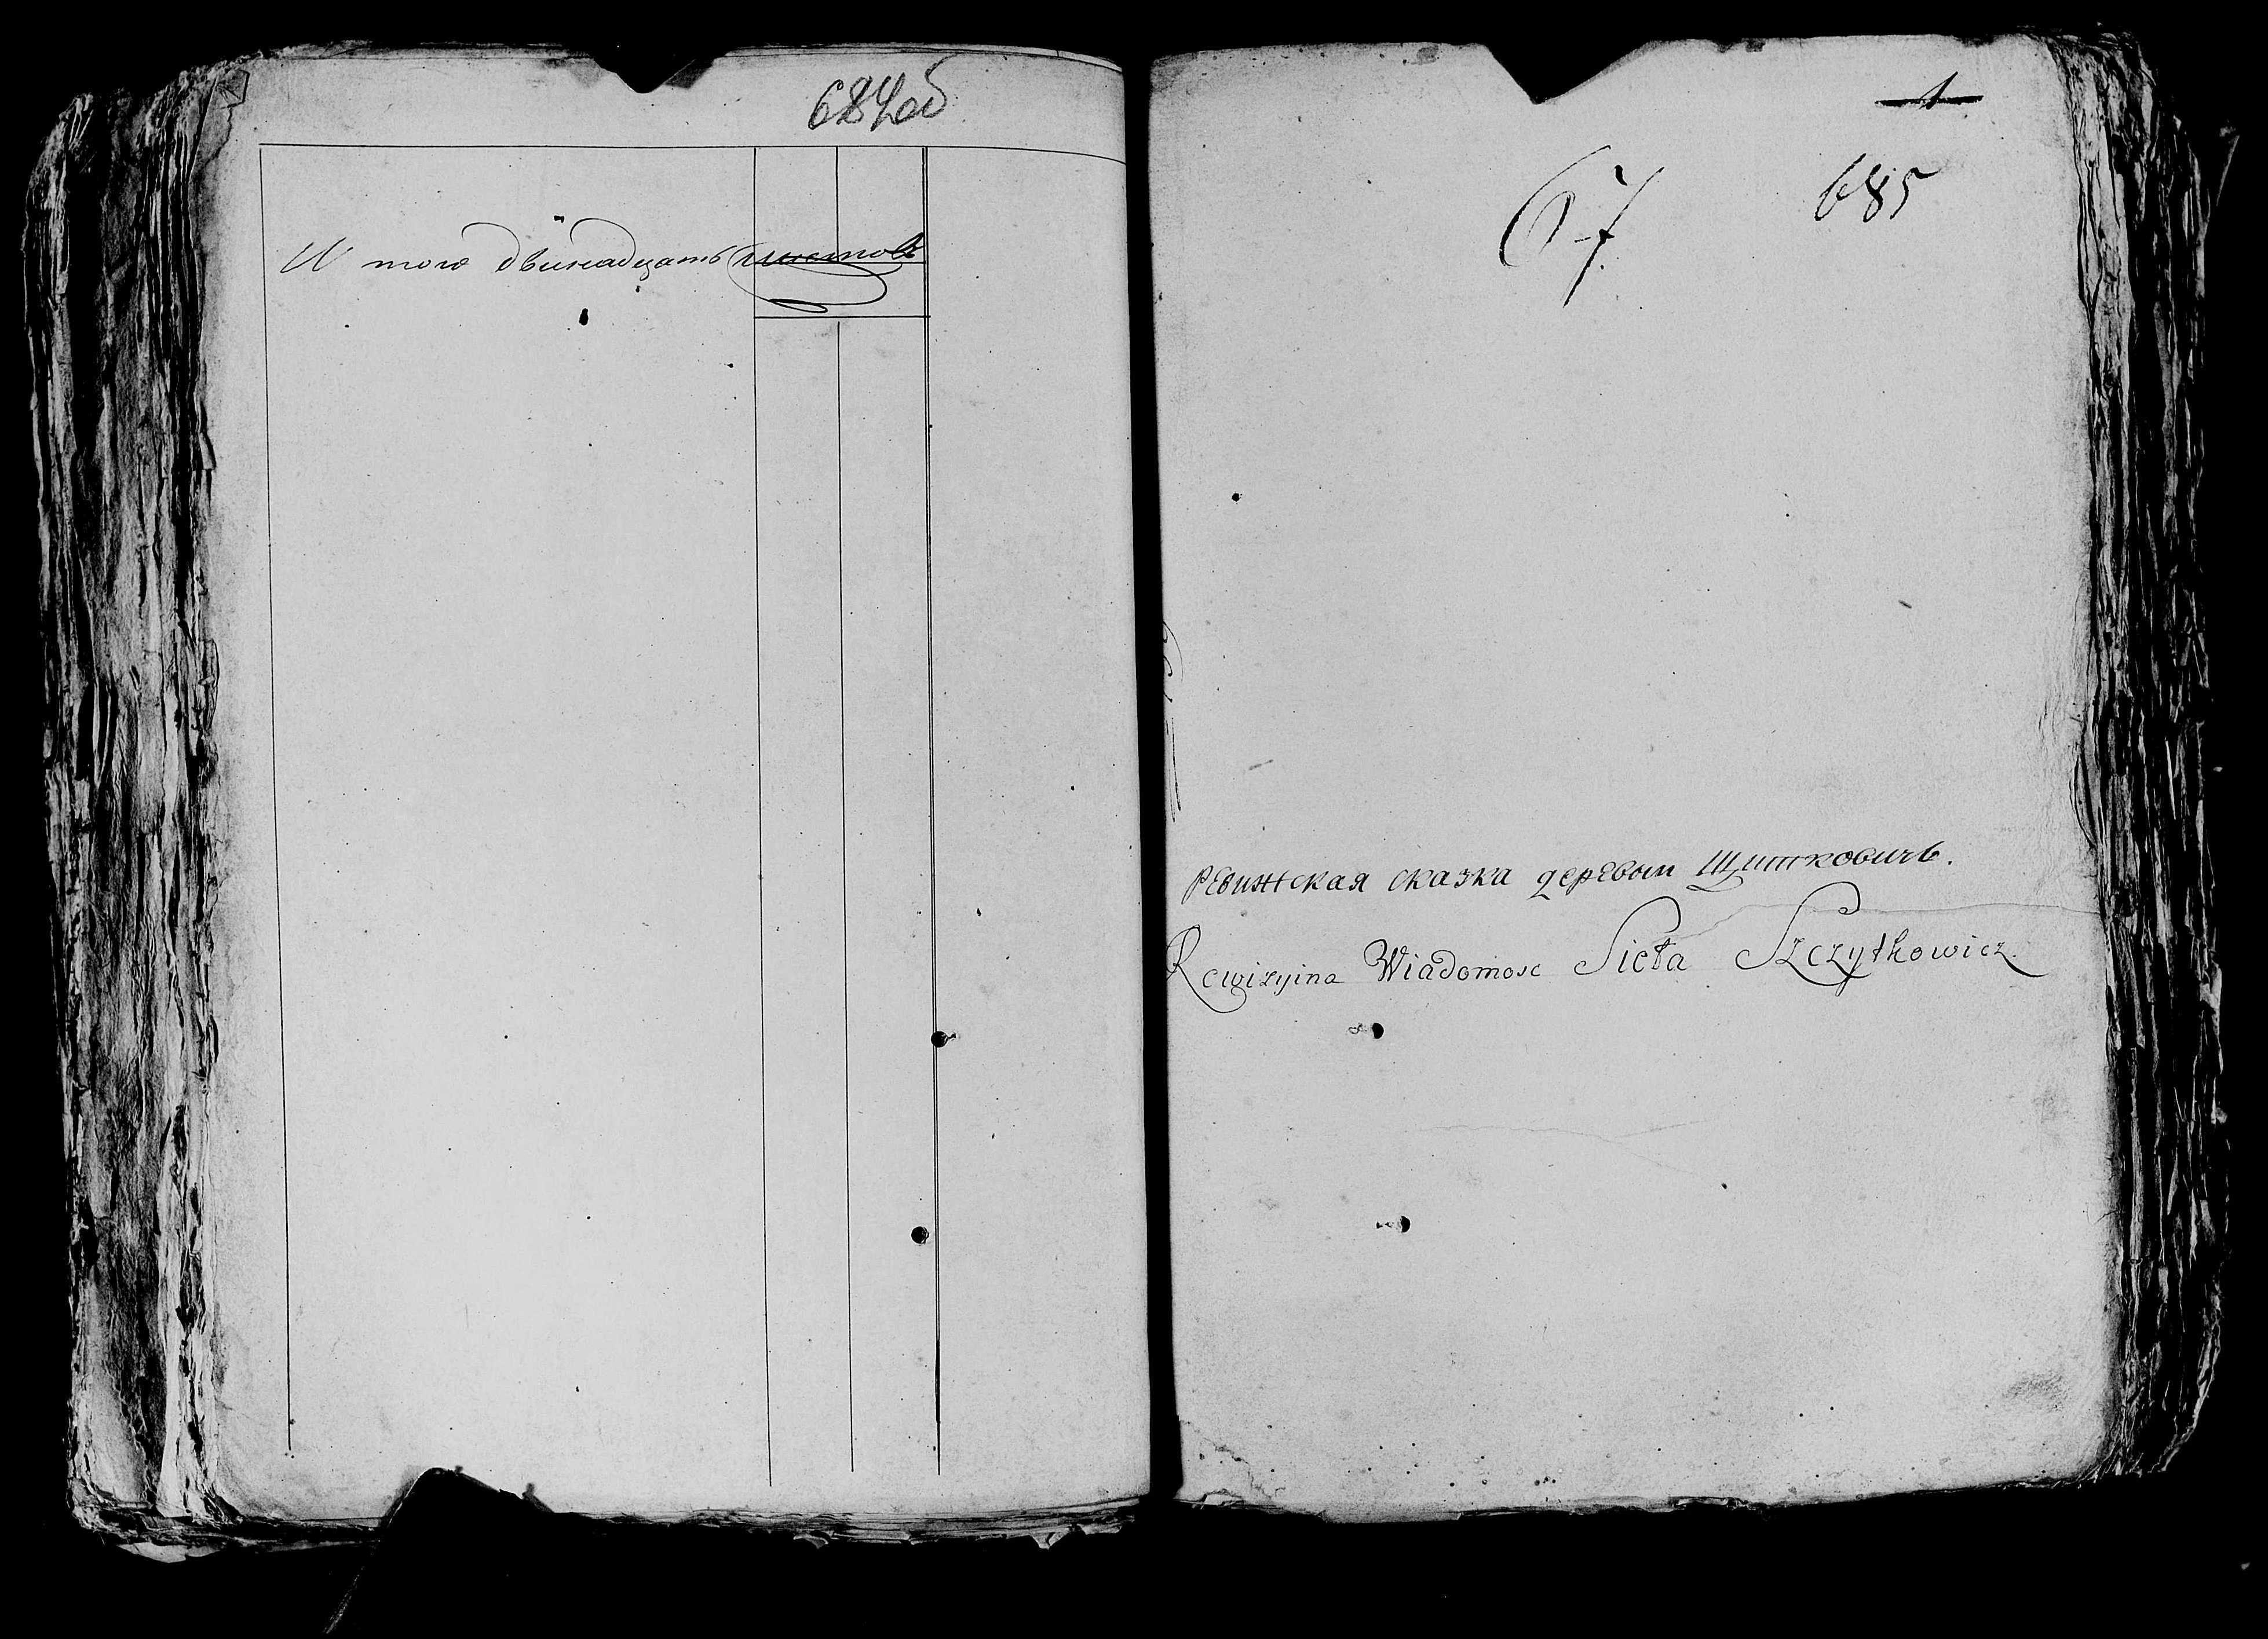 684об
И того двинадцать листовъ
1
67 685
Ревижская сказка деревыи Щитковичъ.
Rewizyina Wiadomosc Sieła Szczytkowicz.